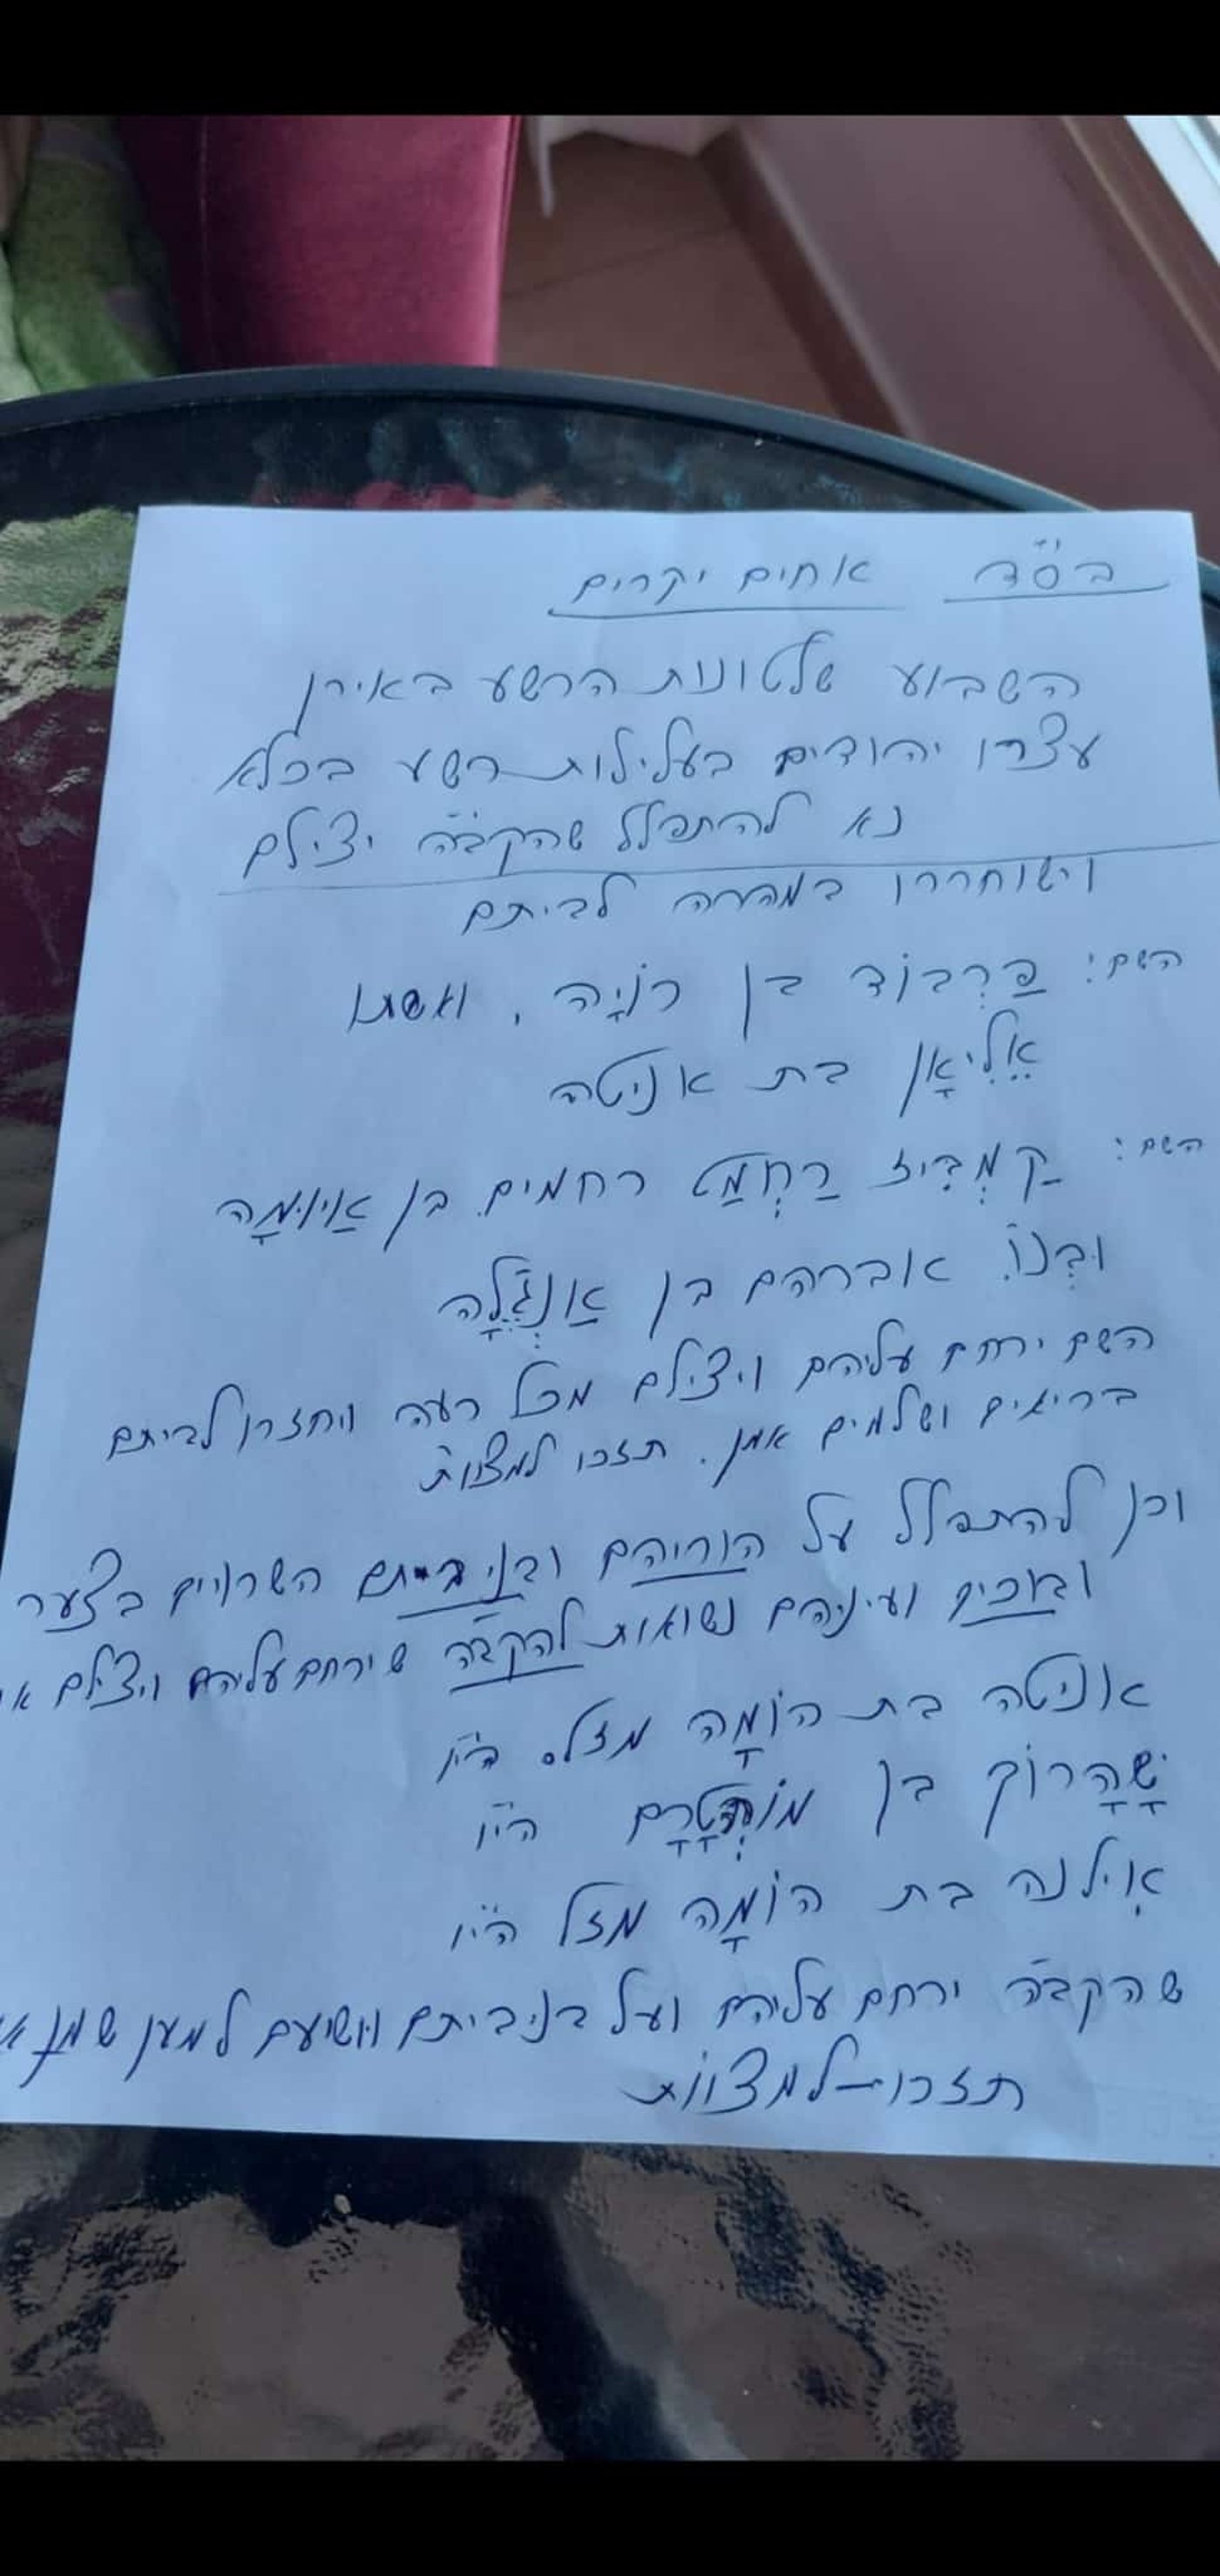 בס"ד אחים יקרים
השבוע שלטונות הרשע באירן
עצרו יהודים בעלילות רשע בכלא
נא להתפלל שהקב"ה יצילם
וישוחררו במהרה לביתם
השם: פַּרְבוֹד בן רוֹיָה, ואשתו
אֱלִיאָן בת אניטה
השם: קַמְבִּיז רַחְמַט רחמים בן
ובְּנוֹ אברהם בן אַנְגֶ'לָה
השם ירחם עליהם ויצילם מכל רעה ויחזרו לביתם
בריאים ושלמים אמן. תזכו למצוות
וכן להתפלל על הוריהם ובני ביתם השרויים בצער
ועיניהם נשואות להקב"ה שירחם עליהם ויצילם
אניטה בת הוֹמָה מזל הי"ו
שָׁהָרוֹק בן הי"ו
אִילנה בת הוֹמָה מזל הי"ו
שהקב"ה ירחם עליהם ועל בני ביתם ויושיעם למען שמו
תזכו למצוות